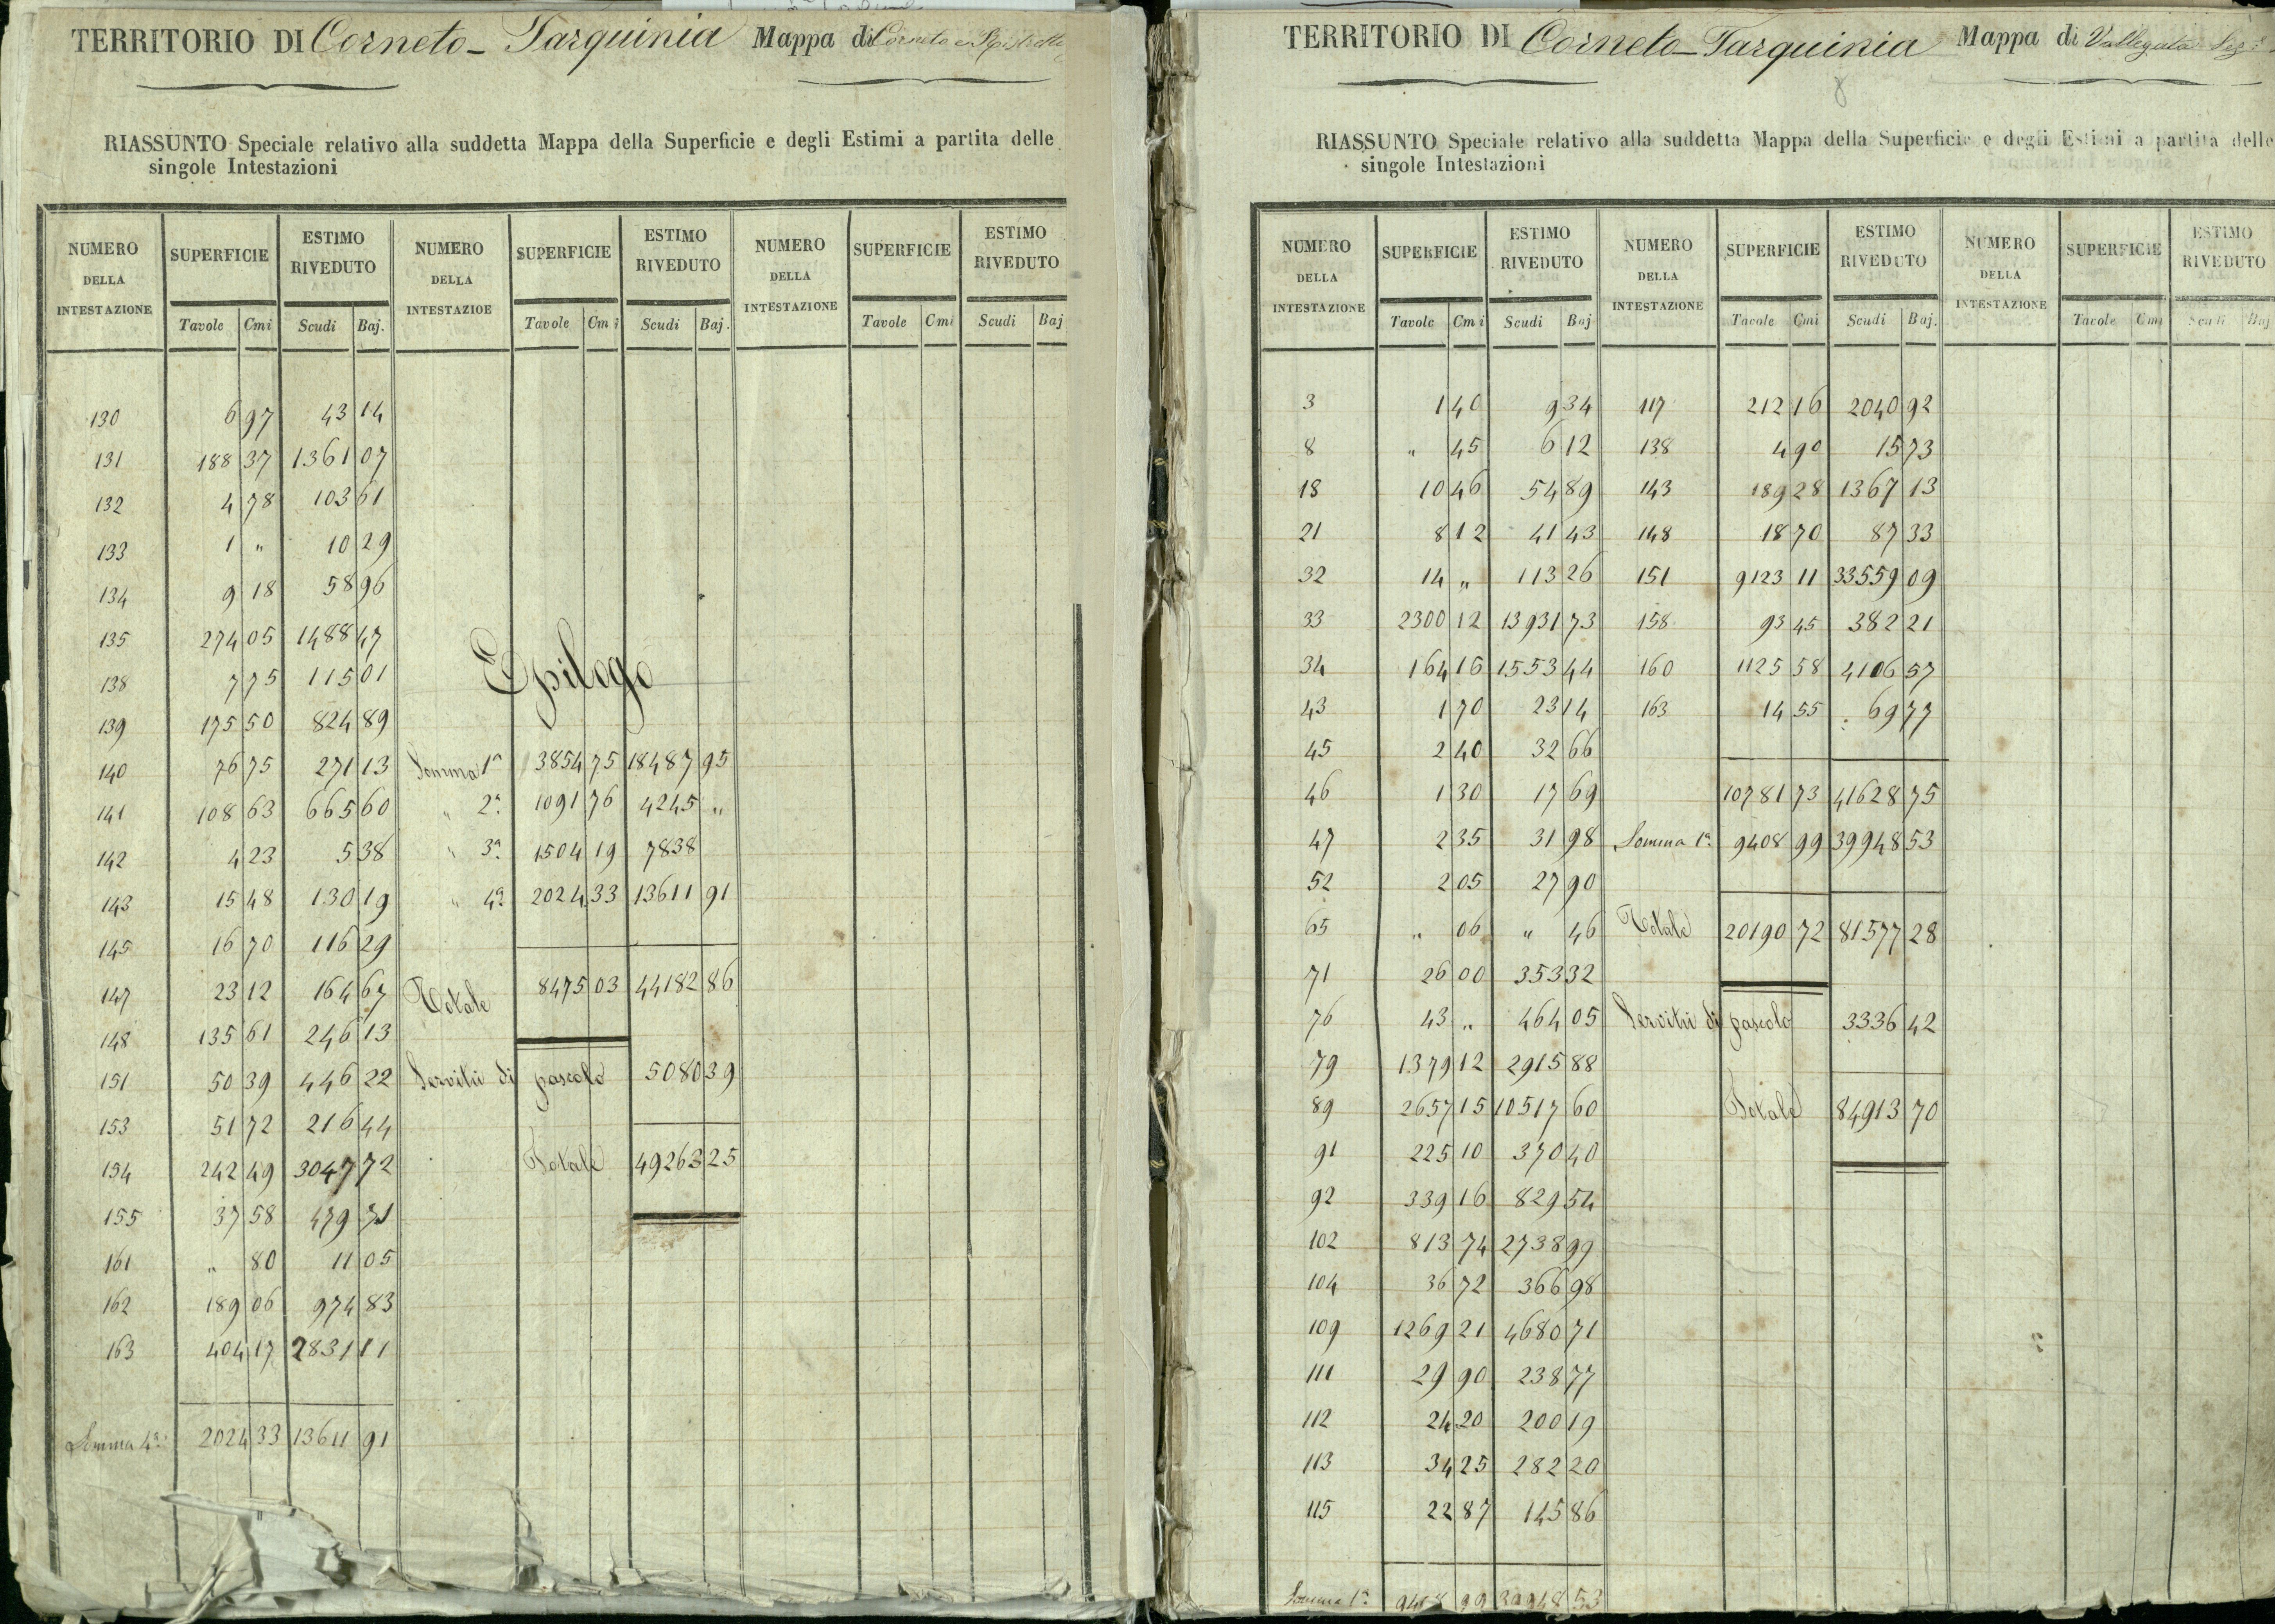 TERRITORIO DI Corneto - Tarquinia Mappa di Corneto e
RIASSUNTO Speciale relativo alla suddetta Mappa della Superficie e degli Estimi a partita delle
singole Intestazioni
NUMERO DELLA INTESTAZIONE SUPERFICIE ESTIMO RIVEDUTO NUMERO DELLA INTESTAZIOE SUPERFICIE ESTIMO RIVEDUTO NUMERO DELLA INTESTAZIONE SUPERFICIE ESTIMO RIVEDUTO
Tavole Cmi Scudi Baj. Tavole Cmi Scudi Baj. Tavole Cmi Scudi Baj
130 6 97 43 14
131 188 37 1361 07
132 4 78 103 61
133 1 „ 10 29
134 9 18 58 96
135 274 05 1488 47
138 7 75 115 01
139 175 50 824 89
140 76 75 271 13
141 108 63 665 60
142 4 23 5 38
143 15 48 130 19
145 16 70 116 29
147 23 12 164 67
148 135 61 246 13
151 50 39 446 22
153 51 72 216 44
154 242 49 3047 72
155 37 58 479 71
161 „ 80 11 05
162 189 06 974 83
163 404 17 2831 11
Somma 4ª 2024 33 13611 91
Epilogo
Somma 1ª 3854 75 18487 95
„ 2ª 1091 76 4245 „
„ 3ª 1504 19 7838
„ 4ª 2024 33 13611 91
Totale 8475 03 44182 86
Servitù di pascolo 5080 39
Totale 49263 25
TERRITORIO DI Corneto - Tarquinia Mappa di Vallegata
8
RIASSUNTO Speciale relativo alla suddetta Mappa della Superficie e degli Estimi a partita delle
singole Intestazioni
NUMERO DELLA INTESTAZIONE SUPERFICIE ESTIMO RIVEDUTO NUMERO DELLA INTESTAZIONE SUPERFICIE ESTIMO RIVEDUTO NUMERO DELLA INTESTAZIONE SUPERFICIE ESTIMO RIVEDUTO
Tavole Cmi Scudi Baj Tavole Cmi Scudi Baj. Tavole Cmi Scudi Baj
3 1 40 9 34
8 „ 45 6 12
18 10 46 54 89
21 8 12 41 43
32 14 „ 113 26
33 2300 12 13931 73
34 164 16 1553 44
43 1 70 23 14
45 2 40 32 66
46 1 30 17 69
47 2 35 31 98
52 2 05 27 90
65 „ 06 „ 46
71 26 00 353 32
76 43 „ 464 05
79 1379 12 2915 88
89 2657 15 10517 60
91 225 10 370 40
92 339 16 829 54
102 813 74 2738 99
104 36 72 366 98
109 1269 21 4680 71
111 29 90 238 77
112 24 20 200 19
113 34 25 282 20
115 22 87 145 86
Somma 1ª 9408 99 39948 53
117 212 16 2040 92
138 4 90 15 73
143 189 28 1367 13
148 18 70 87 33
151 9123 11 33559 09
158 93 45 382 21
160 1125 58 4106 57
163 14 55 69 77
10781 73 41628 75
Somma 1ª 9408 99 39948 53
Totale 20190 72 81577 28
Servitù di pascolo 3336 42
Totale 84913 70